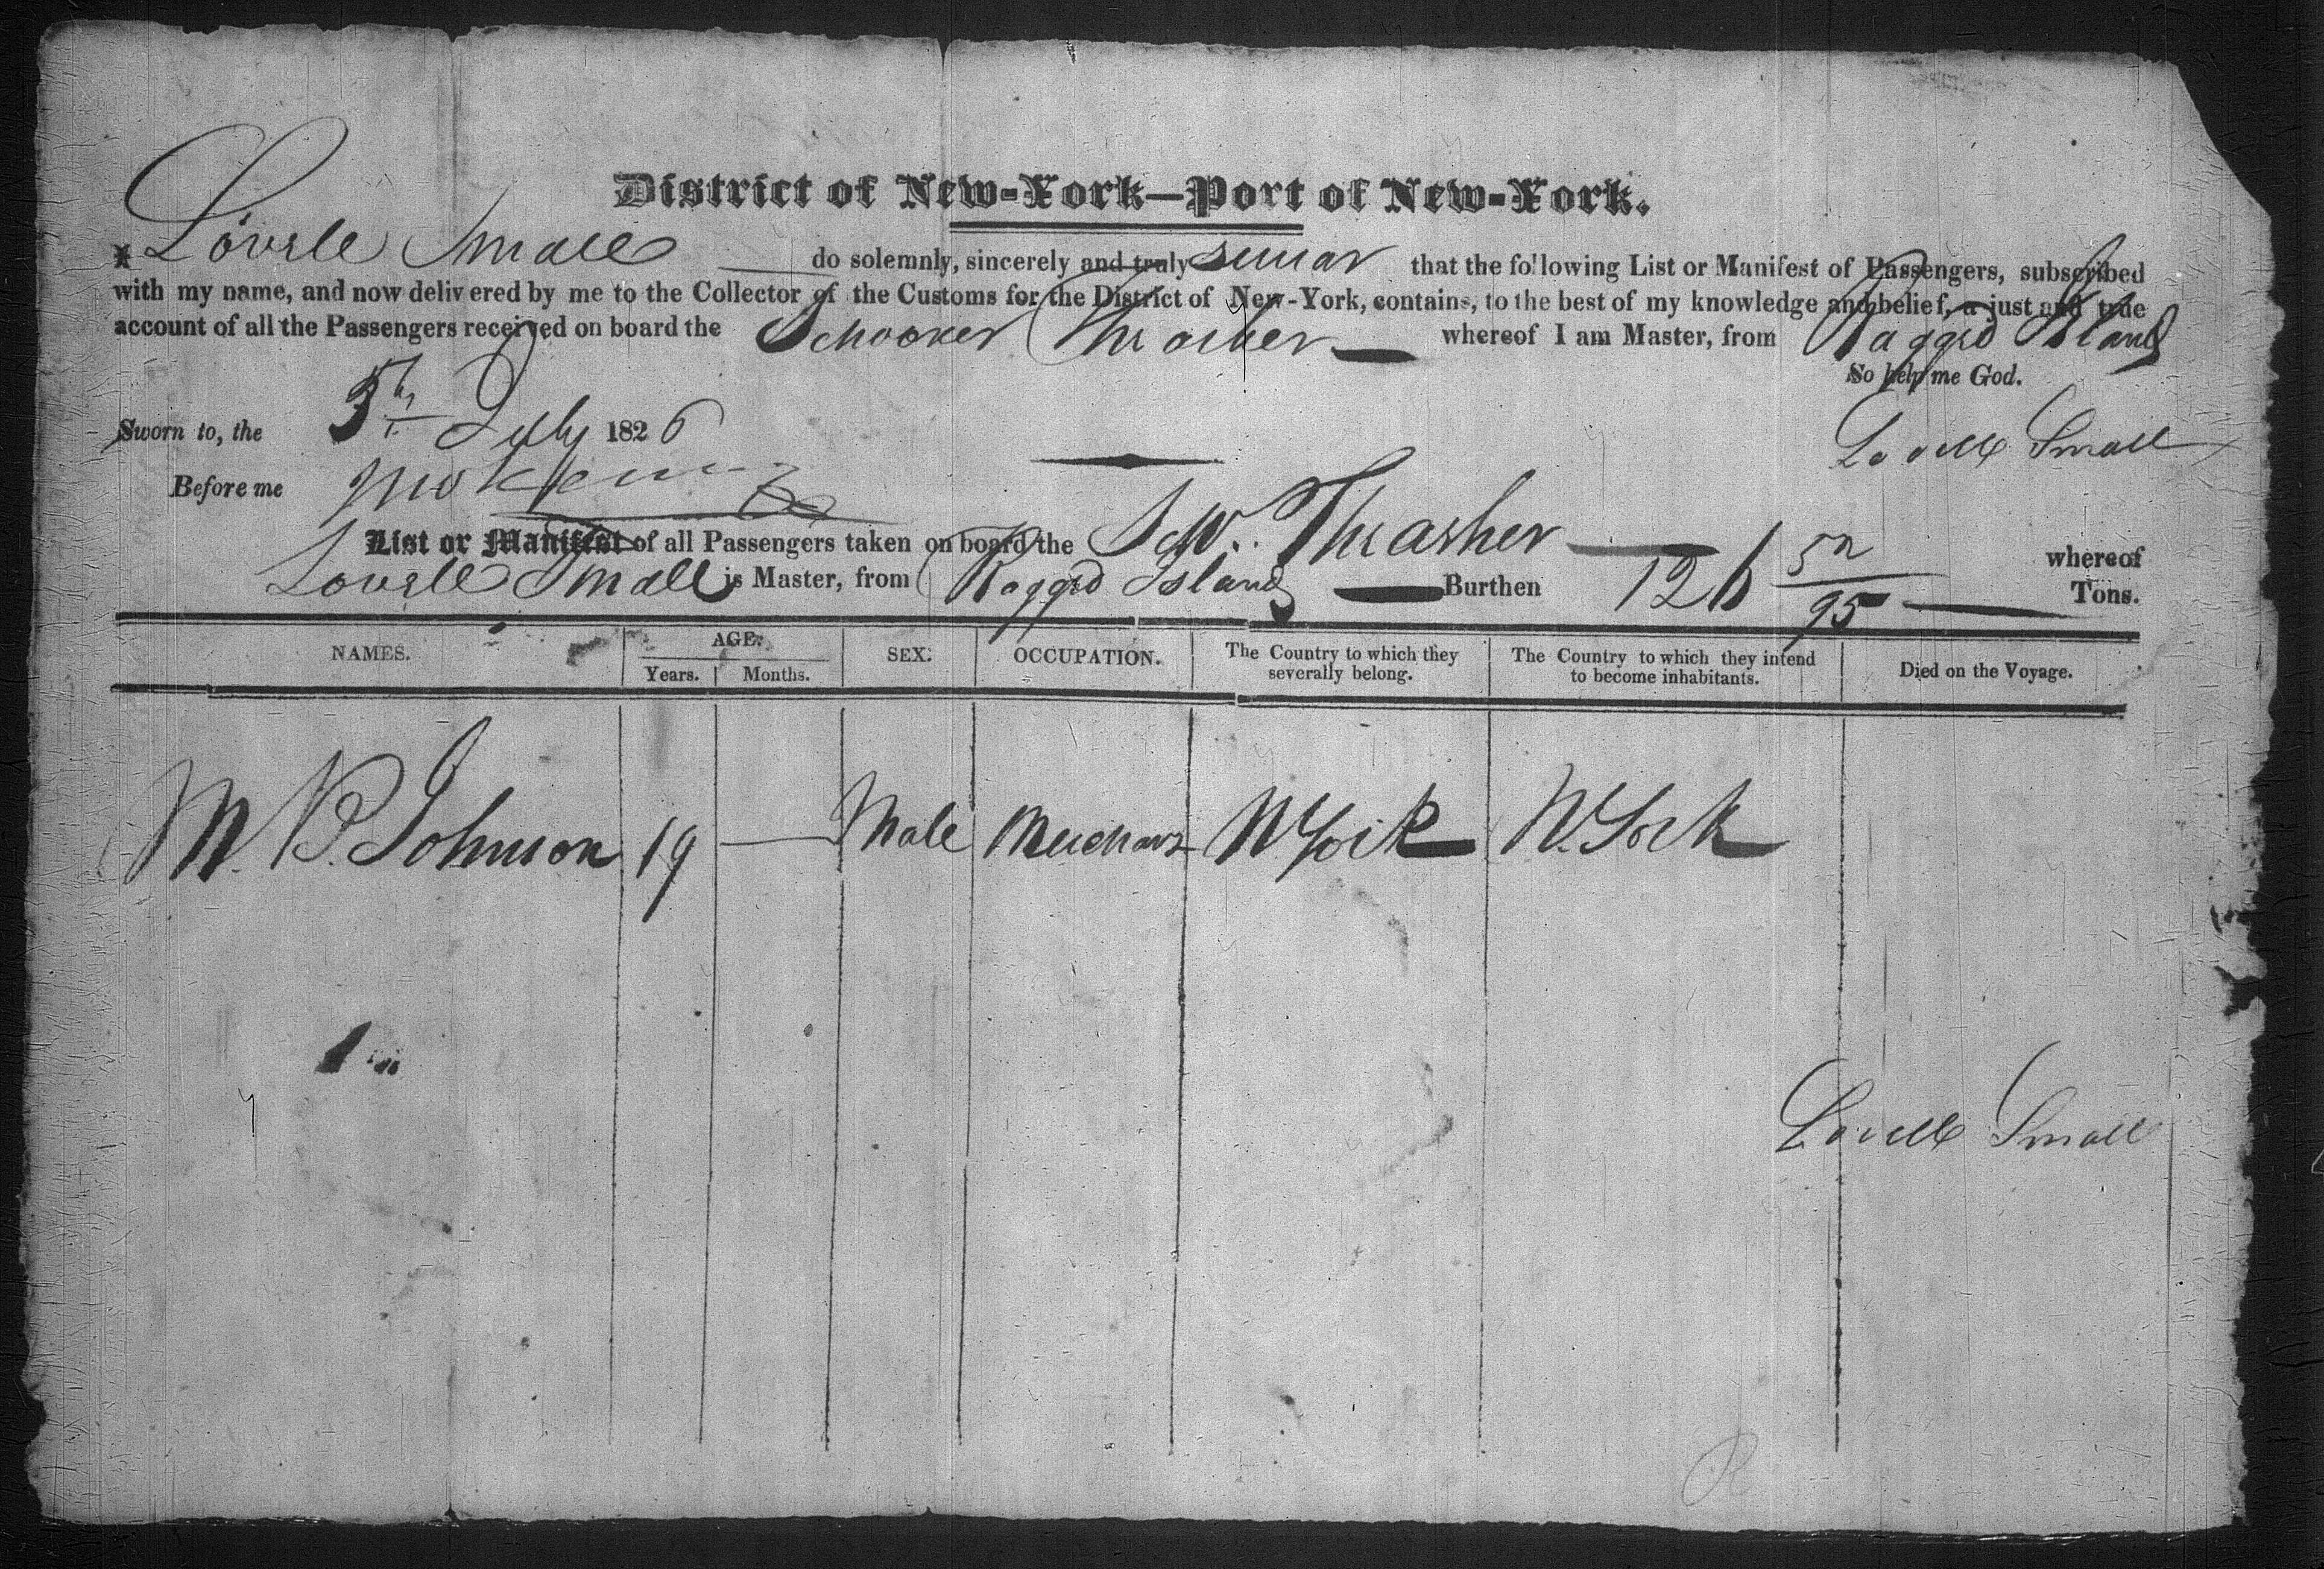 District of New-York—Port of New-York.
I Lovell Small do solemnly, sincerely and truly swear that the following List or Manifest of Passengers, subscribed
with my name, and now delivered by me to the Collector of the Customs for the District of New-York, contains, to the best of my knowledge and belief, a just and true
account of all the Passengers received on board the Schooner Thrasher whereof I am Master, from Ragged Island
So help me God.
Sworn to, the 5th July 1826
Lovell Small
Before me
List or Manifest of all Passengers taken on board the Schr. Thrasher whereof
Lovell Small is Master, from Ragged Island Burthen 126 52/95 Tons.
NAMES. AGE. SEX. OCCUPATION. The Country to which they severally belong. The Country to which they intend to become inhabitants. Died on the Voyage.
Years. Months.
M. B. Johnson 19 — Male Merchant N York N. York
Lovell Small